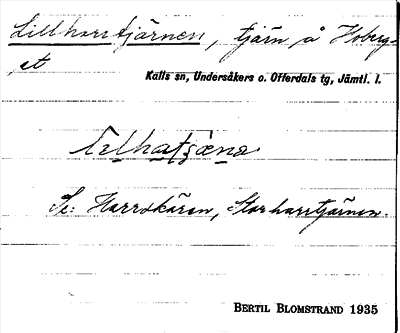 Lillharrtjärnen, tjärn å Hoberg-
et
Kalls sn, Undersåkers o. Offerdals tg, Jämtl. l.
Se: Harrokären, Storharrtjärnen.
BERTIL BLOMSTRAND 1935